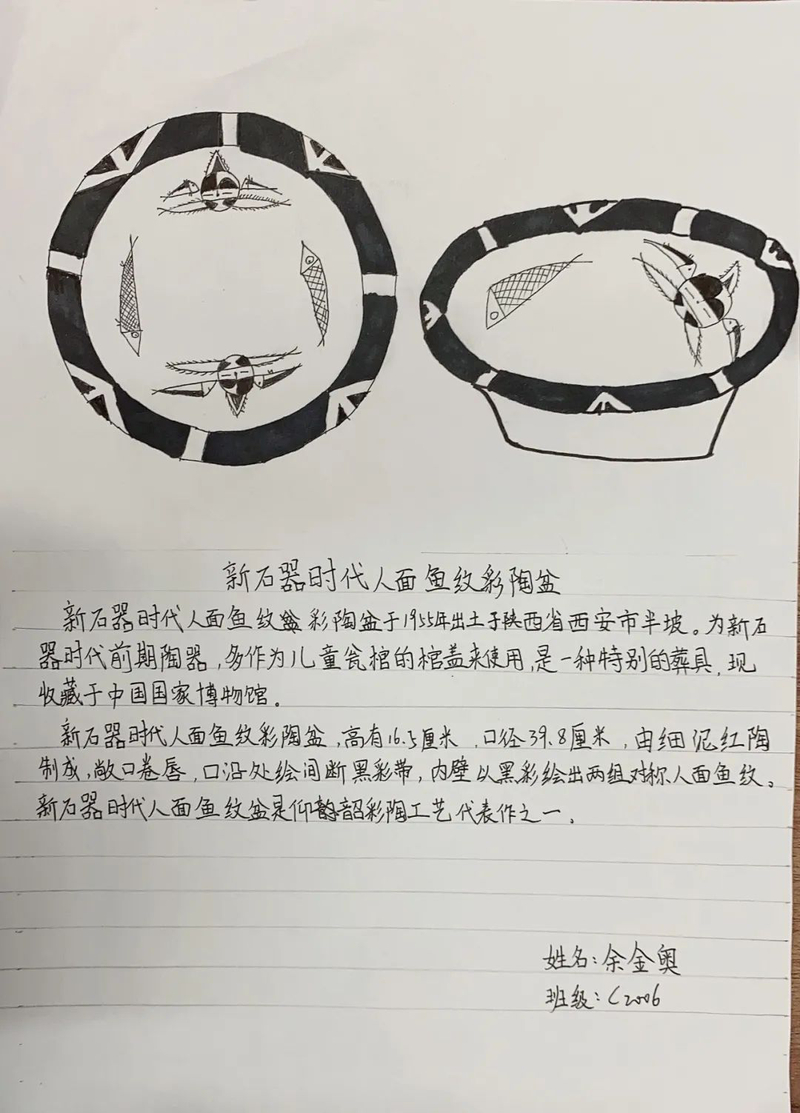 新石器时代人面鱼纹彩陶盆
新石器时代人面鱼纹彩陶盆于1955年出土于陕西省西安市半坡。为新石
器时代前期陶器,多作为儿童瓮棺的棺盖来使用,是一种特别的葬具,现
收藏于中国国家博物馆。
新石器时代人面鱼纹彩陶盆,高有16.5厘米,口径39.8厘米,由细泥红陶
制成,敞口卷唇,口沿处绘间断黑彩带,内壁以黑彩绘出两组对称人面鱼纹。
新石器时代人面鱼纹盆是仰韶彩陶工艺代表作之一。
姓名:余金奥
班级:C2006